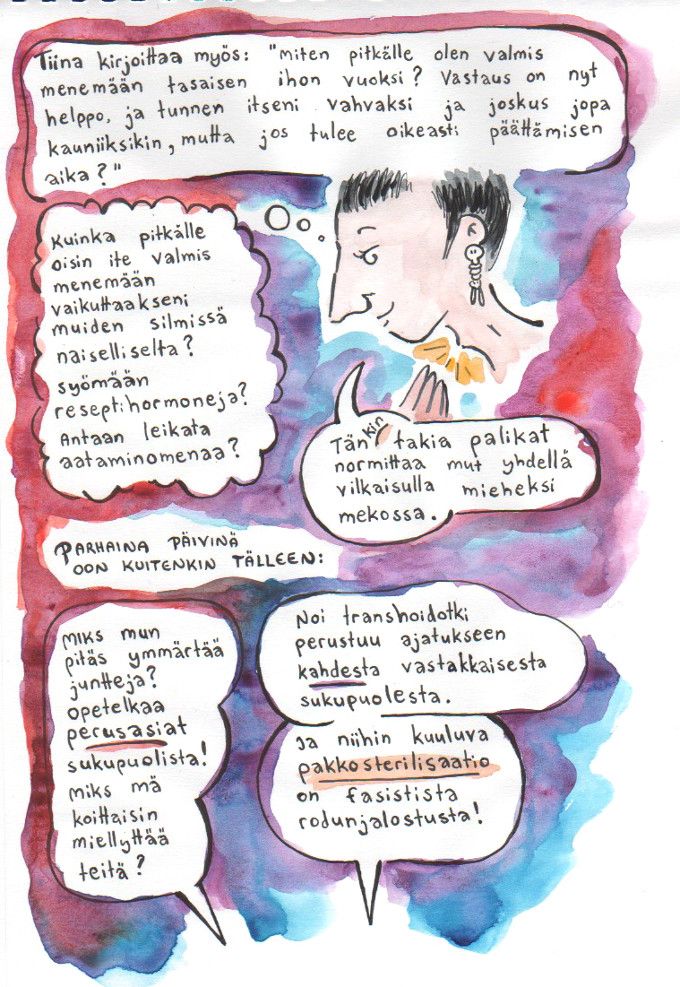 Tiina kirjoittaa myös: "miten pitkälle olen valmis
menemään tasaisen ihon vuoksi? Vastaus on nyt
helppo, ja tunnen itseni vahvaksi ja joskus jopa
kauniiksikin, mutta jos tulee oikeasti päättämisen
aika?"
Kuinka pitkälle
oisin ite valmis
menemään
vaikuttaakseni
muiden silmissä
naiselliselta?
syömään
reseptihormoneja?
Antaan leikata
aataminomenaa?
Tän kin takia palikat
normittaa mut yhdellä
vilkaisulla mieheksi
mekossa.
PARHAINA PÄIVINÄ
OON KUITENKIN TÄLLEEN:
Miks mun
pitäs ymmärtää
juntteja?
opetelkaa
perusasiat
sukupuolista!
miks mä
koittaisin
miellyttää
teitä?
Noi transhoidotki
perustuu ajatukseen
kahdesta vastakkaisesta
sukupuolesta.
Ja niihin kuuluva
pakkosterilisaatio
on fasistista
rodunjalostusta!